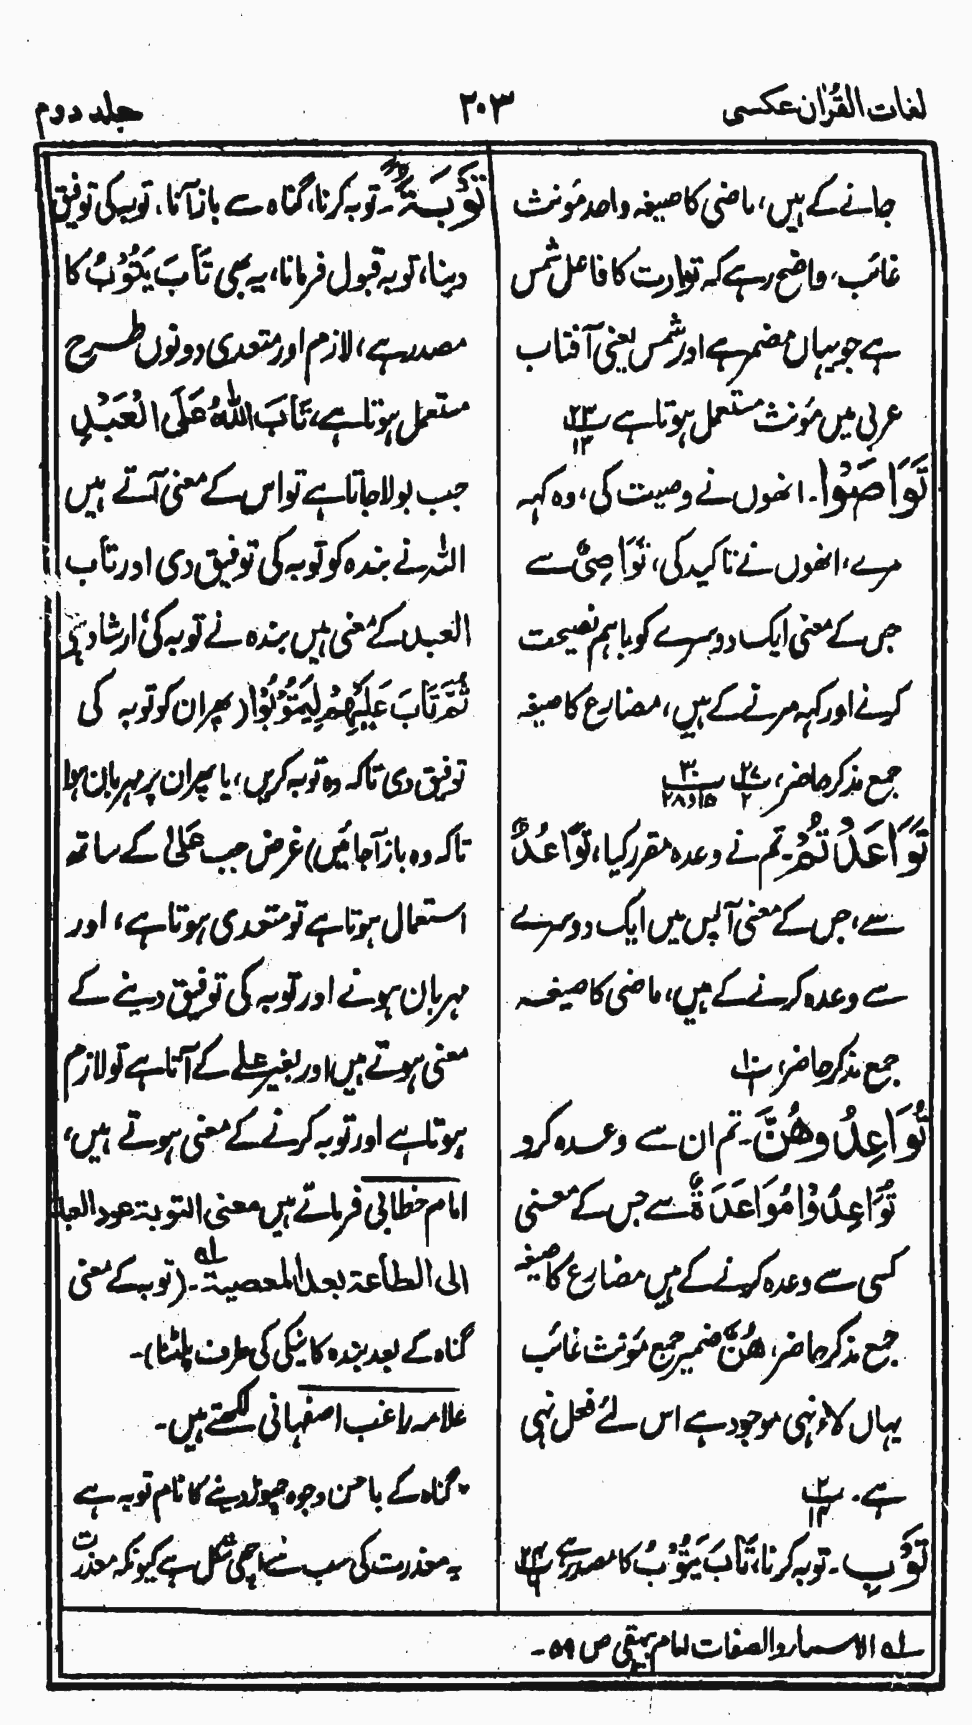 لغات القرآن عکسی
۲۰۳
جلد دوم
جانے کے ہیں، ماضی کا صیغہ واحد مؤنث
غائب، واضح رہے کہ توارت کا فاعل شمس
ہے جو یہاں مضمر ہے اور شمس یعنی آفتاب
عربی میں مؤنث مستعمل ہوتا ہے ۲۳/۱۳
تَوَاصَوْا۔ انھوں نے وصیت کی، وہ کہہ
مرے، انھوں نے تاکید کی، تَوَاصِیْ سے
جس کے معنی ایک دوسرے کو باہم نصیحت
کرنے اور کہہ مرنے کے ہیں، مضارع کا صیغہ
جمع مذکر حاضر، ۲۷/۲ ۳۰/۱۵و۲۸
تَوَاعَدْتُمْ۔ تم نے وعدہ مقرر کیا، تَوَاعُدٌ
سے، جس کے معنی آپس میں ایک دوسرے
سے وعدہ کرنے کے ہیں، ماضی کا صیغہ
جمع مذکر حاضر، ۱۰/۱
تُوَاعِدُوهُنَّ۔ تم ان سے وعدہ کرو
تُوَاعِدُوْا مُوَاعَدَةٌ سے جس کے معنی
کسی سے وعدہ کرنے کے ہیں مضارع کا صیغہ
جمع مذکر حاضر، هُنَّ ضمیر جمع مؤنث غائب
یہاں لاء نہی موجود ہے اس لئے فعل نہی
ہے۔ ۲/۱۴
تَوْبِ۔ توبہ کرنا، تَابَ یَتُوْبُ کا مصدر ہے ۲۴/۹
تَوْبَةً۔ توبہ کرنا، گناہ سے باز آنا، توبہ کی توفیق
دینا، توبہ قبول فرمانا، یہ بھی تَابَ یَتُوْبُ کا
مصدر ہے، لازم اور متعدی دونوں طرح
مستعمل ہوتا ہے، تَابَ اللهُ عَلَی الْعَبْدِ
جب بولا جاتا ہے تو اس کے معنی آتے ہیں
اللہ نے بندہ کو توبہ کی توفیق دی اور تاب
العبد کے معنی ہیں بندہ نے توبہ کی، ارشاد ہے
ثُمَّ تَابَ عَلَیْهِمْ لِیَتُوْبُوْا (پھر ان کو توبہ کی
توفیق دی تاکہ وہ توبہ کریں، یا پھر ان پر مہربان ہوا
تاکہ وہ باز آجائیں) غرض جب عَلیٰ کے ساتھ
استعمال ہوتا ہے تو متعدی ہوتا ہے، اور
مہربان ہونے اور توبہ کی توفیق دینے کے
معنی ہوتے ہیں اور بغیر علے کے آتا ہے تو لازم
ہوتا ہے اور توبہ کرنے کے معنی ہوتے ہیں،
امام خطابی فرماتے ہیں معنی التوبۃ عود العبد
الی الطاعۃ بعد المعصیۃ۔ لہ (توبہ کے معنی
گناہ کے بعد بندہ کا نیکی کی طرف پلٹنا)۔
علامہ راغب اصفہانی لکھتے ہیں۔
"گناہ کے باحسن وجوہ چھوڑ دینے کا نام توبہ ہے
یہ معذرت کی سب سے اچھی شکل ہے کیونکہ معذرت
لہ الاسماء والصفات امام بیہقی ص ۵۹۔